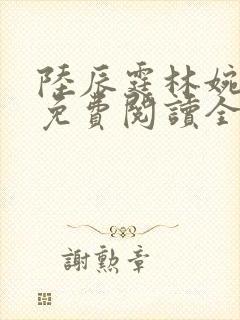 陸辰霆林婉
免費閱讀全
謝勲章